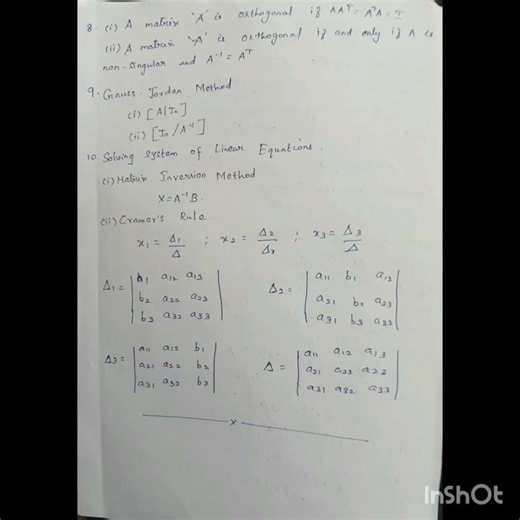 8. (i) A matrix 'A' is orthogonal if AAᵀ = AᵀA = I
(ii) A matrix 'A' is orthogonal if and only if A is
non-singular and A⁻¹ = Aᵀ
9. Gauss-Jordan Method
(i) [A|In]
(ii) [In/A⁻¹]
10. Solving system of Linear Equations.
(i) Matrix Inversion Method
X = A⁻¹B.
(ii) Cramor's Rule
x₁ = Δ₁/Δ ; x₂ = Δ₂/Δ₂ ; x₃ = Δ₃/Δ
Δ₁ = | b₁ a₁₂ a₁₃ | Δ₂ = | a₁₁ b₁ a₁₃ |
| b₂ a₂₂ a₂₃ | | a₂₁ b₂ a₂₃ |
| b₃ a₃₂ a₃₃ | | a₃₁ b₃ a₃₃ |
Δ₃ = | a₁₁ a₁₂ b₁ | Δ = | a₁₁ a₁₂ a₁₃ |
| a₂₁ a₂₂ b₂ | | a₂₁ a₂₂ a₂₃ |
| a₃₁ a₃₂ b₃ | | a₃₁ a₃₂ a₃₃ |
x
InShOt